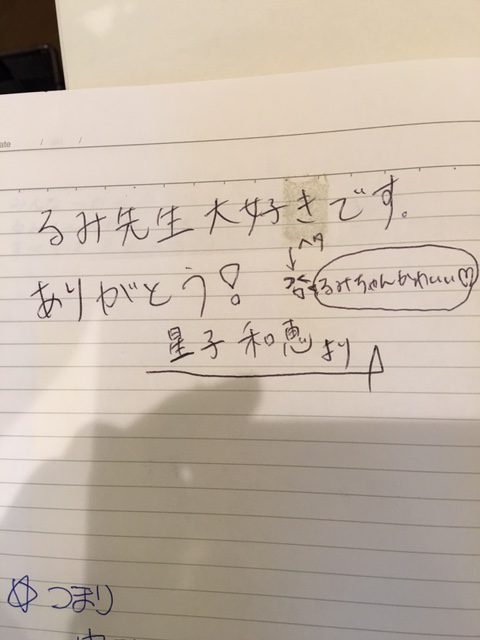 ate / /
るみ先生大好きです。
↓ヘタ
ありがとう! るみちゃんかわいい♡
星子和恵より
☆つまり